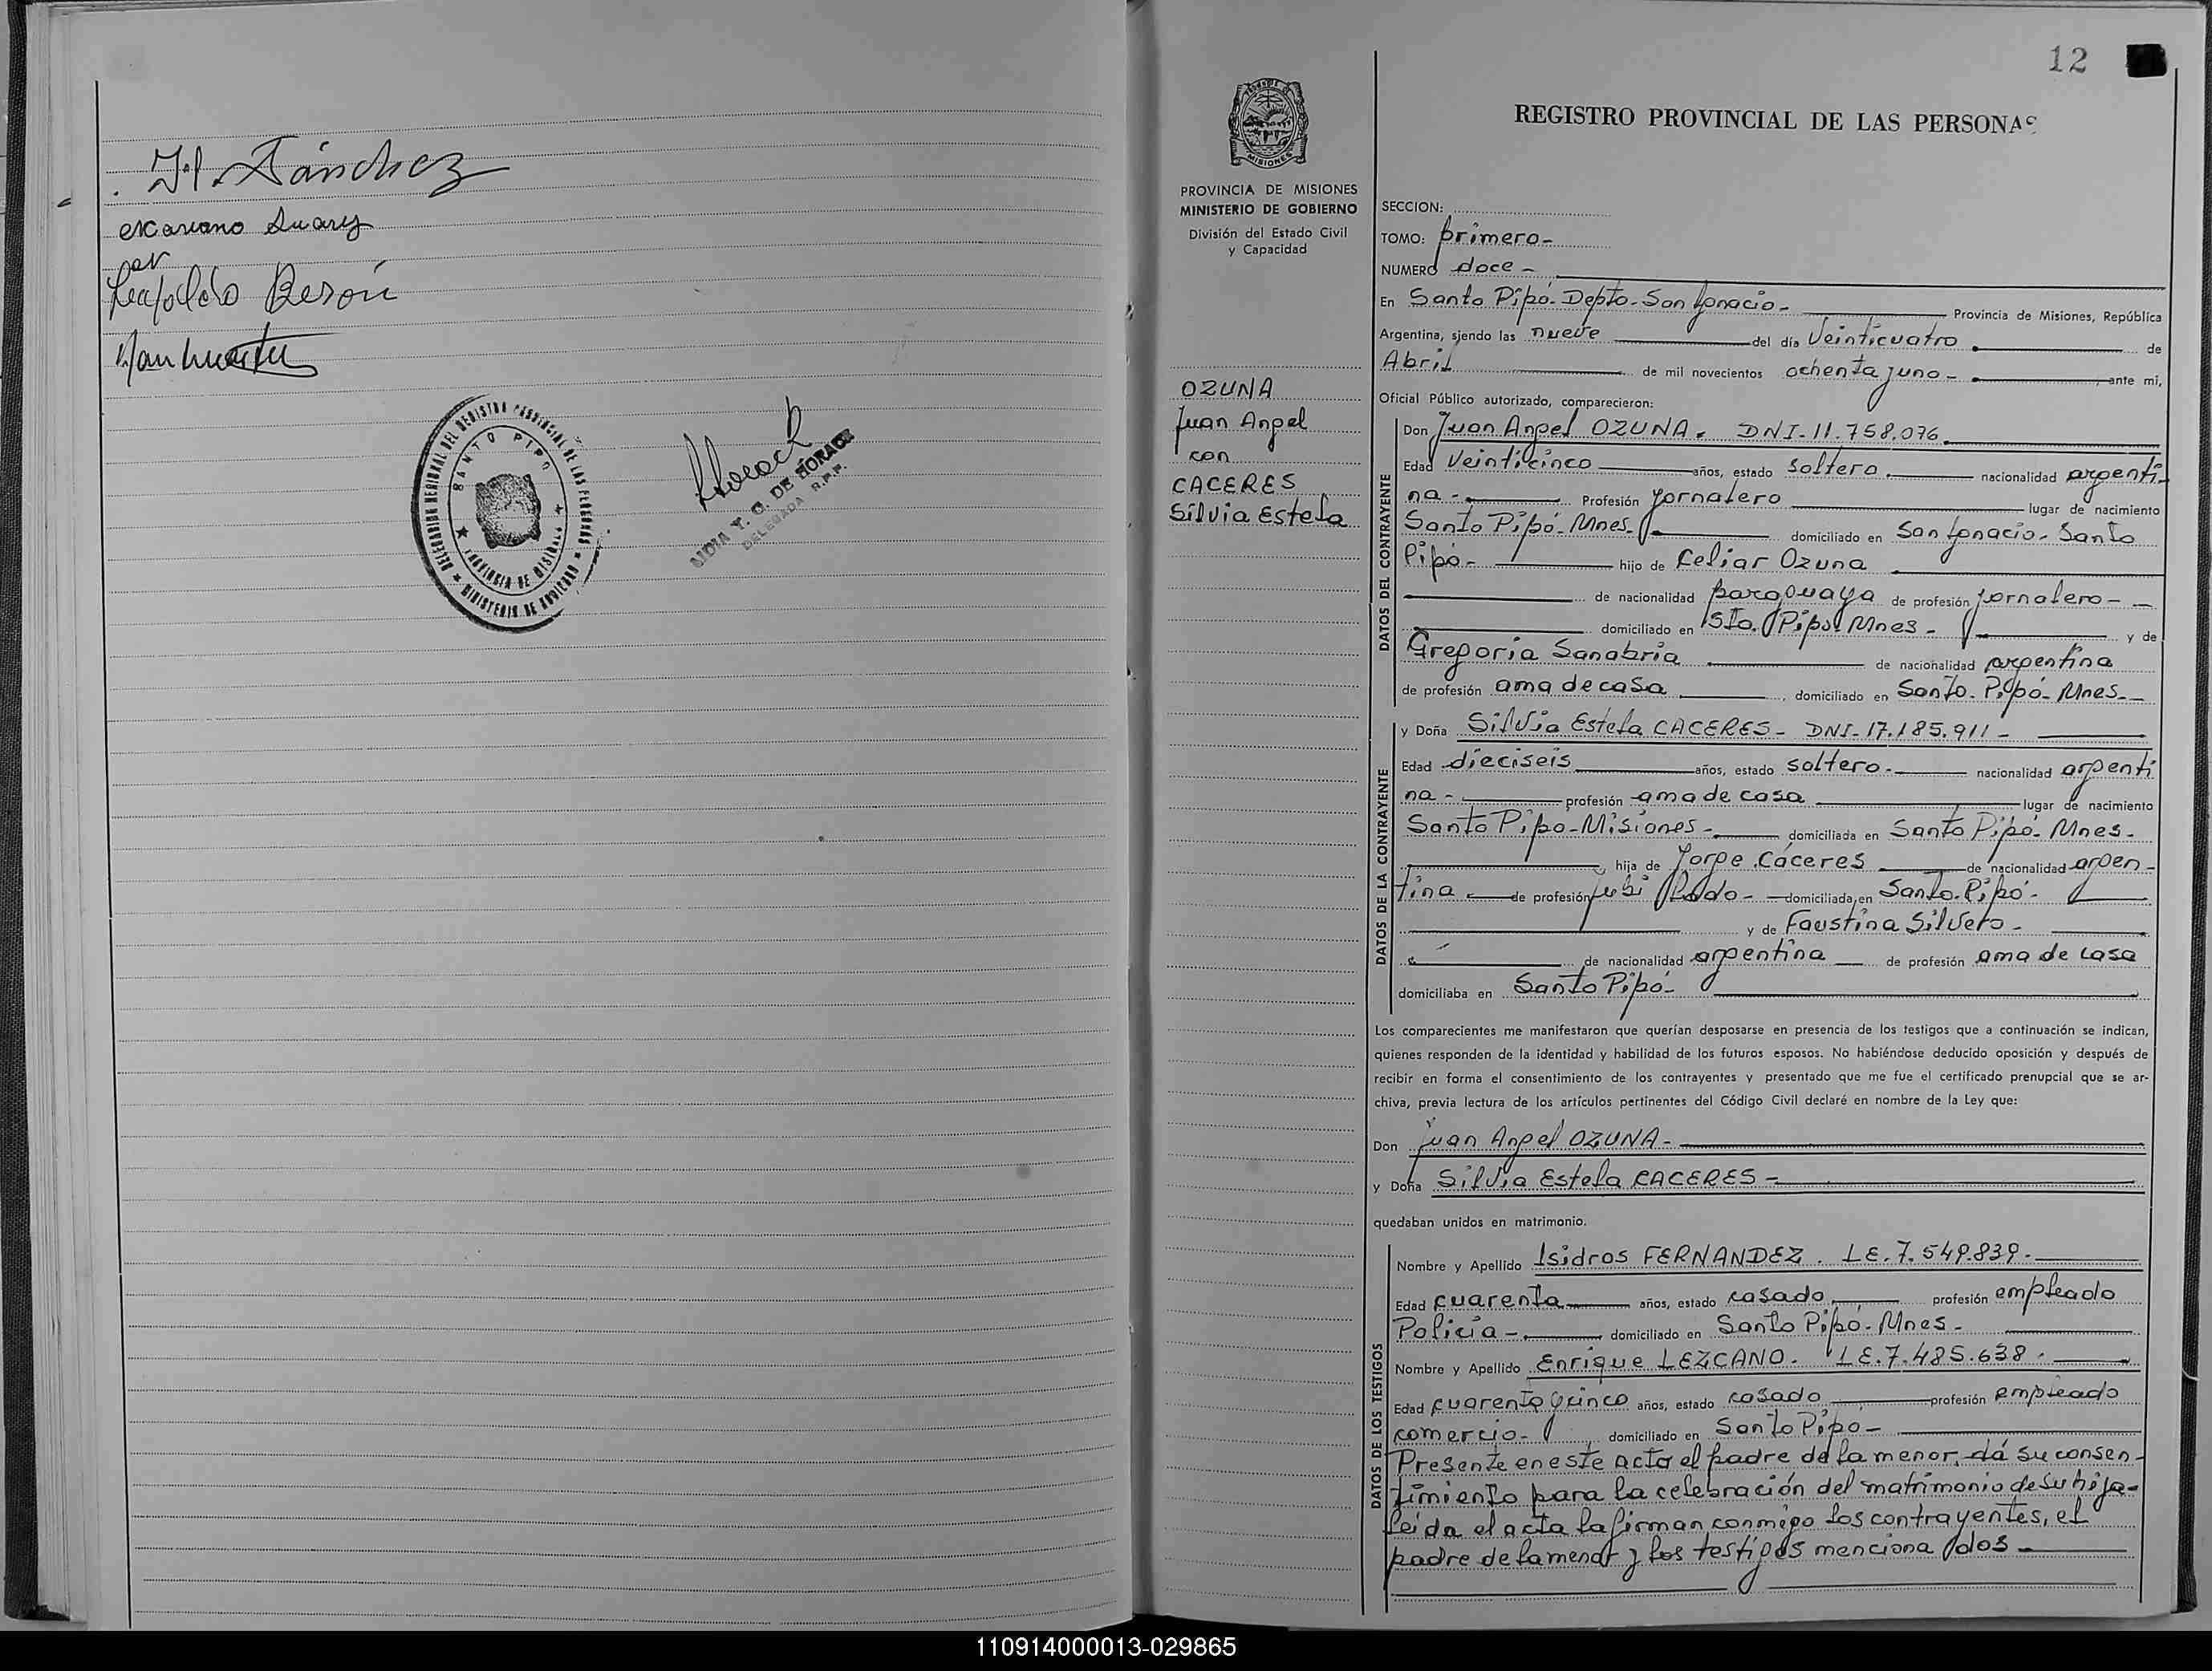 Sánchez
Mariano Suarez
por
Leopoldo Beron
DELEGACION REGIONAL DEL REGISTRO PROVINCIAL DE LAS PERSONAS
SANTO PIPO
PROVINCIA DE MISIONES
MINISTERIO DE GOBIERNO
Y. G. DE HORACK
DELEGADA R.P.P.
12
MISIONES
PROVINCIA DE MISIONES
MINISTERIO DE GOBIERNO
División del Estado Civil
y Capacidad
OZUNA
Juan Angel
con
CACERES
Silvia Estela
REGISTRO PROVINCIAL DE LAS PERSONAS
SECCION:
TOMO: primero-
NUMERO doce-
En Santo Pipó- Depto- San Ignacio- Provincia de Misiones, República
Argentina, siendo las nueve del día Veinticuatro de
Abril de mil novecientos ochenta y uno- ante mi,
Oficial Público autorizado, comparecieron:
DATOS DEL CONTRAYENTE
Don Juan Angel OZUNA. DNI-11.758.076.
Edad Veinticinco años, estado soltero. nacionalidad argenti-
na- Profesión jornalero lugar de nacimiento
Santo Pipó- Mnes. domiciliado en San Ignacio- Santo
Pipó- hijo de Celiar Ozuna
de nacionalidad paraguaya de profesión jornalero-
domiciliado en Sto. Pipó Mnes- y de
Gregoria Sanabria de nacionalidad argentina
de profesión ama de casa domiciliado en Santo- Pipó- Mnes-
DATOS DE LA CONTRAYENTE
y Doña Silvia Estela CACERES- DNI-17.185.911-
Edad dieciseis años, estado soltero- nacionalidad argenti
na- profesión ama de casa lugar de nacimiento
Santo Pipó- Misiones- domiciliada en Santo Pipó- Mnes-
hija de Jorge Cáceres de nacionalidad argen-
tina de profesión jubilado- domiciliada en Santo- Pipó-
y de Faustina Silvero-
de nacionalidad argentina de profesión ama de casa
domiciliaba en Santo Pipó-
Los comparecientes me manifestaron que querían desposarse en presencia de los testigos que a continuación se indican,
quienes responden de la identidad y habilidad de los futuros esposos. No habiéndose deducido oposición y después de
recibir en forma el consentimiento de los contrayentes y presentado que me fue el certificado prenupcial que se ar-
chiva, previa lectura de los artículos pertinentes del Código Civil declaré en nombre de la Ley que:
Don Juan Angel OZUNA-
y Doña Silvia Estela CACERES-
quedaban unidos en matrimonio.
DATOS DE LOS TESTIGOS
Nombre y Apellido Isidros FERNANDEZ. LE.7.549.839-
Edad cuarenta años, estado casado profesión empleado
Policia- domiciliado en Santo Pipó- Mnes-
Nombre y Apellido Enrique LEZCANO. LE.7.485.638.
Edad cuarenta y cinco años, estado casado profesión empleado
comercio- domiciliado en Santo Pipó-
Presente en este acto el padre de la menor, dá su consen-
timiento para la celebración del matrimonio de su hija-
leída el acta la firman conmigo los contrayentes, el
padre de la menor y los testigos mencionados-
110914000013-029865